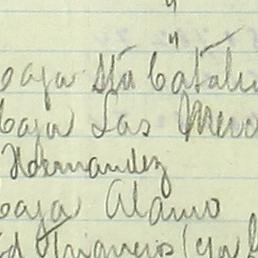 "
baja Sta Catali
baja Las Merc
Hernandez
baja Alamo